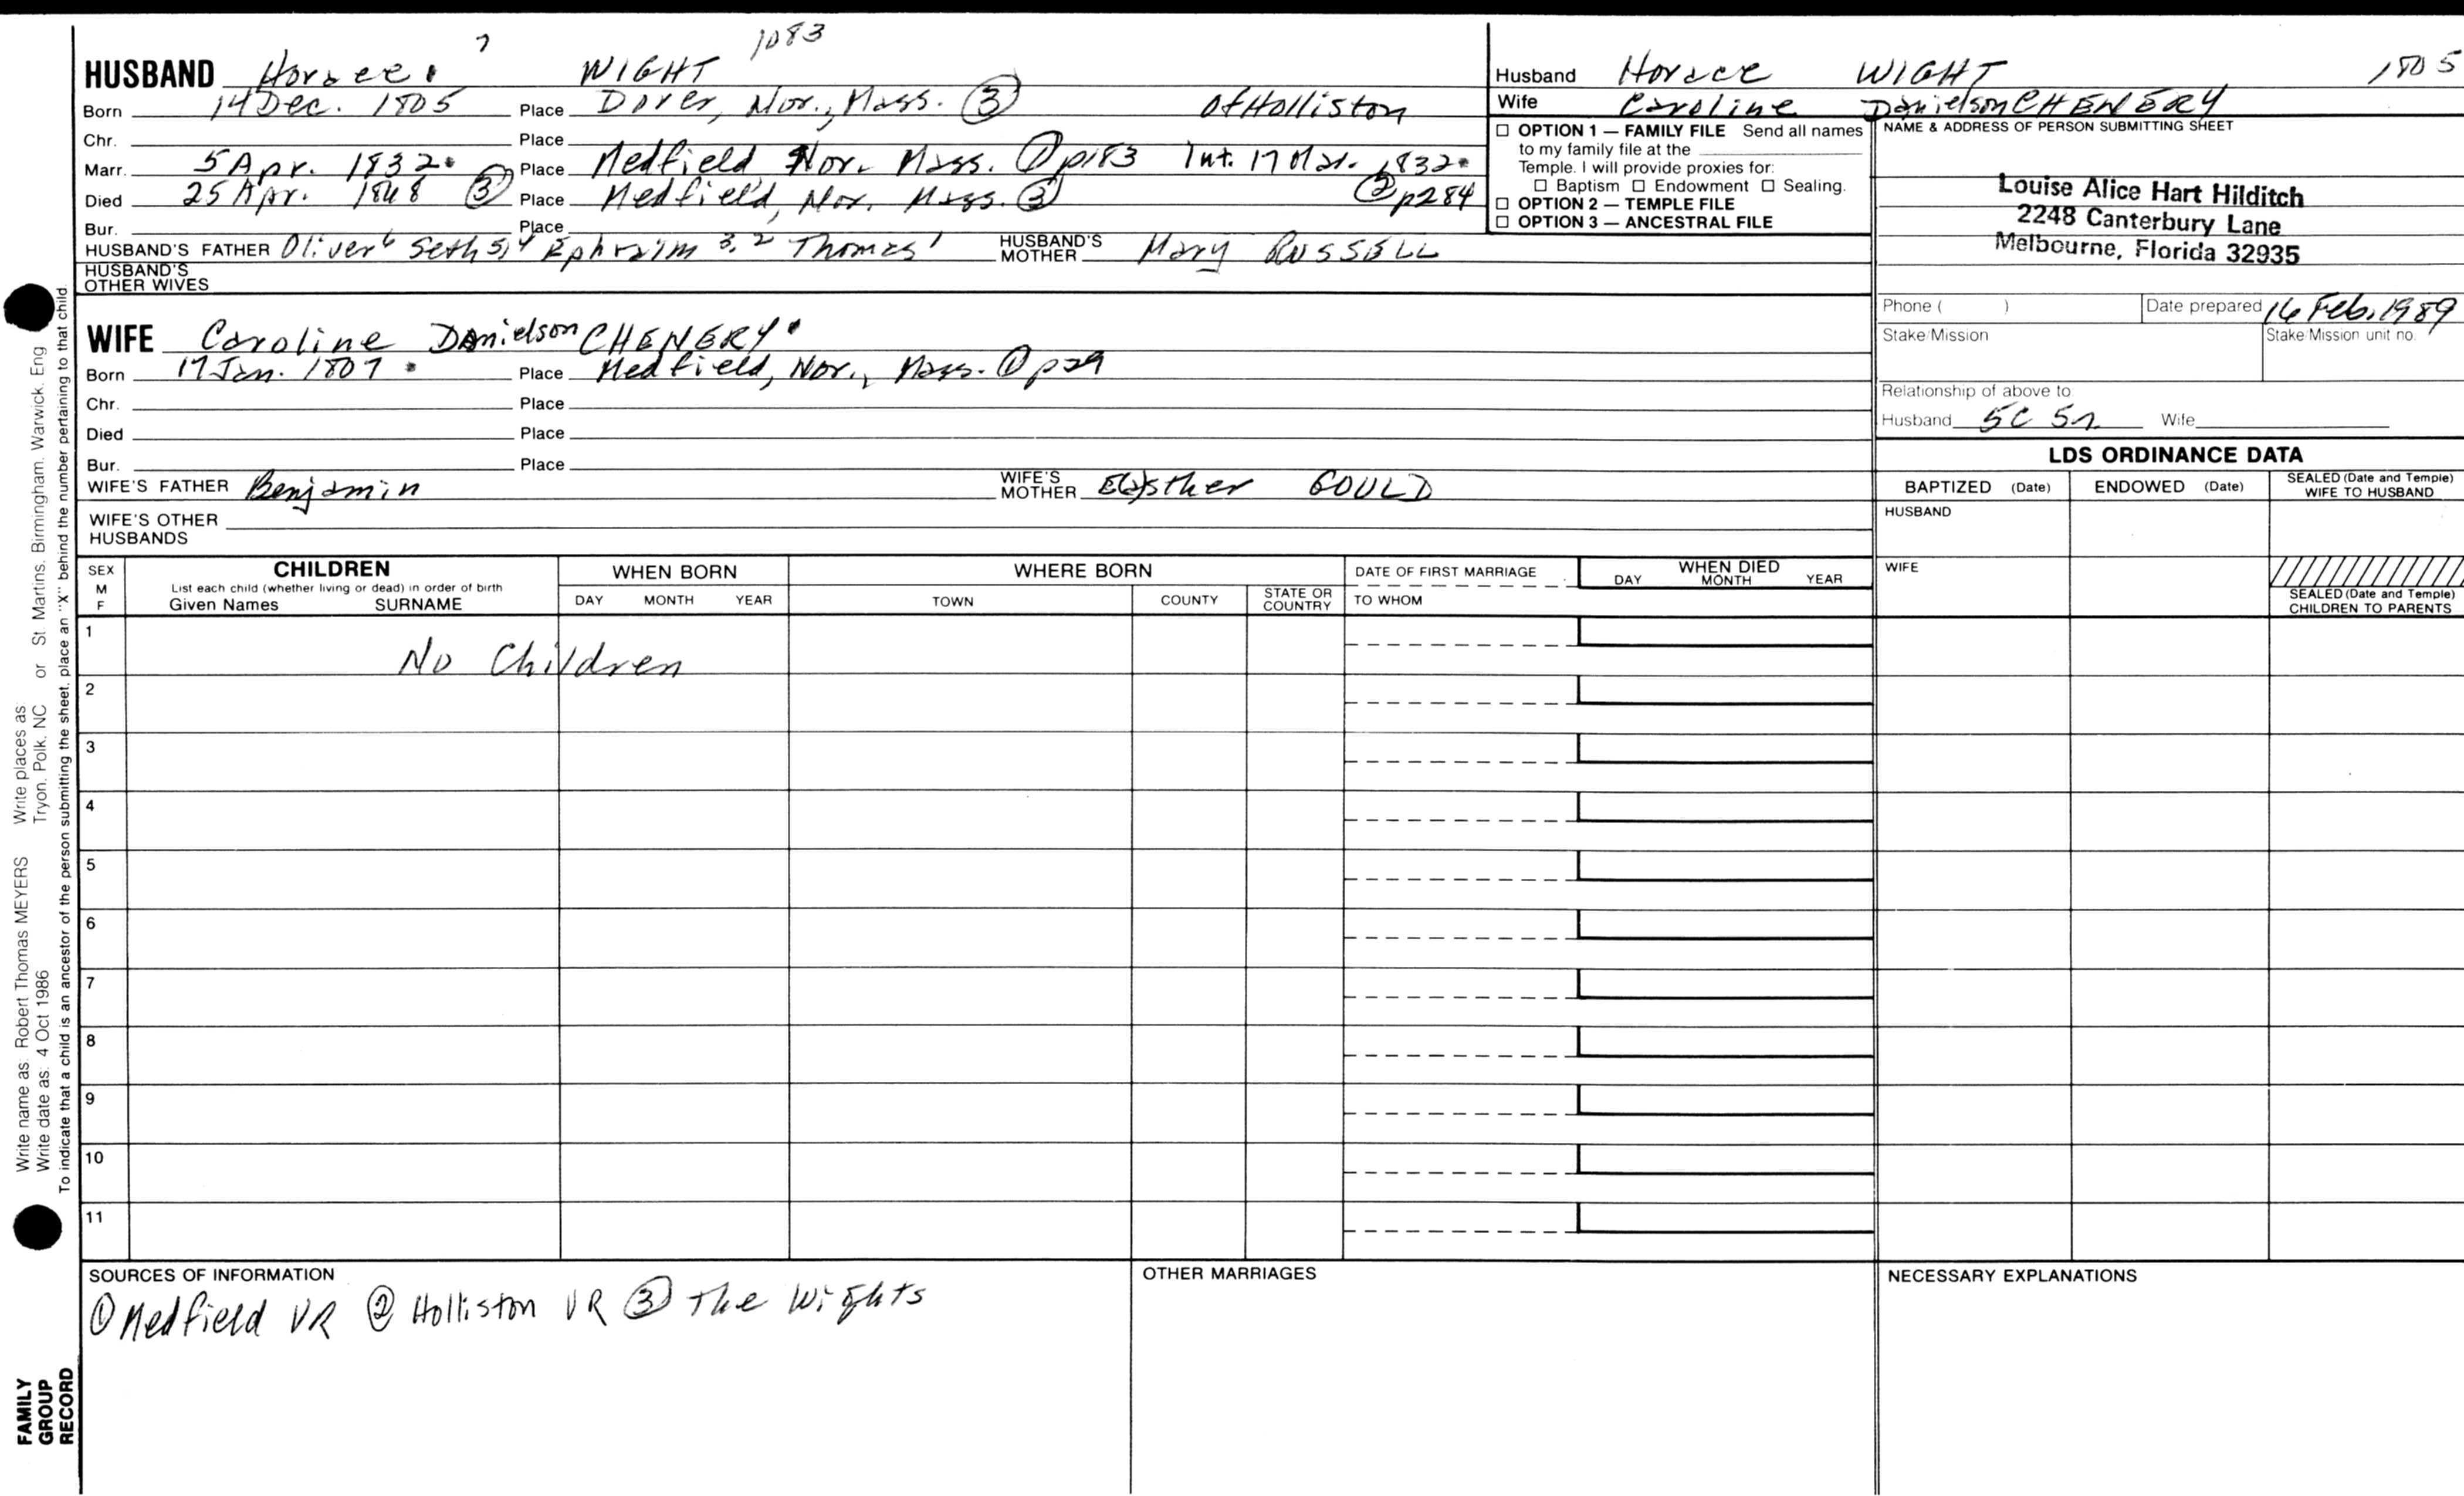 7 1083
HUSBAND Horace WIGHT
Born 14 Dec. 1805 Place Dover, Nor., Mass. ③ of Holliston
Chr. Place
Marr. 5 Apr. 1832 Place Medfield Nor. Mass. ① p183 Int. 17 Mar. 1832
Died 25 Apr. 1848 ③ Place Medfield, Nor. Mass. ③ ② p284
Bur. Place
HUSBAND'S FATHER Oliver 6 Seth 5,4 Ephraim 3,2 Thomas 1 HUSBAND'S MOTHER Mary RUSSELL
HUSBAND'S
OTHER WIVES
Husband Horace WIGHT 1805
Wife Caroline Danielson CHENERY
☐ OPTION 1 — FAMILY FILE Send all names
to my family file at the
Temple. I will provide proxies for:
☐ Baptism ☐ Endowment ☐ Sealing.
☐ OPTION 2 — TEMPLE FILE
☐ OPTION 3 — ANCESTRAL FILE
NAME & ADDRESS OF PERSON SUBMITTING SHEET
Louise Alice Hart Hilditch
2248 Canterbury Lane
Melbourne, Florida 32935
Phone ( ) Date prepared 16 Feb. 1989
Stake/Mission Stake/Mission unit no.
Relationship of above to
Husband 5C 5r Wife
WIFE Caroline Danielson CHENERY
Born 17 Jan. 1807 Place Medfield, Nor., Mass. ① p29
Chr. Place
Died Place
Bur. Place
WIFE'S FATHER Benjamin WIFE'S MOTHER E(s)ther GOULD
WIFE'S OTHER
HUSBANDS
LDS ORDINANCE DATA
BAPTIZED (Date) ENDOWED (Date) SEALED (Date and Temple) WIFE TO HUSBAND
HUSBAND
WIFE
SEALED (Date and Temple)
CHILDREN TO PARENTS
SEX
M
F
CHILDREN
List each child (whether living or dead) in order of birth
Given Names SURNAME
WHEN BORN
DAY MONTH YEAR
WHERE BORN
TOWN COUNTY STATE OR COUNTRY
DATE OF FIRST MARRIAGE
TO WHOM
WHEN DIED
DAY MONTH YEAR
1 No Children
2
3
4
5
6
7
8
9
10
11
SOURCES OF INFORMATION
① Medfield VR ② Holliston VR ③ The Wights
OTHER MARRIAGES
NECESSARY EXPLANATIONS
Write name as: Robert Thomas MEYERS Write places as
Write date as: 4 Oct 1986 Tryon, Polk, NC or St Martins, Birmingham, Warwick, Eng
To indicate that a child is an ancestor of the person submitting the sheet, place an "X" behind the number pertaining to that child.
FAMILY
GROUP
RECORD